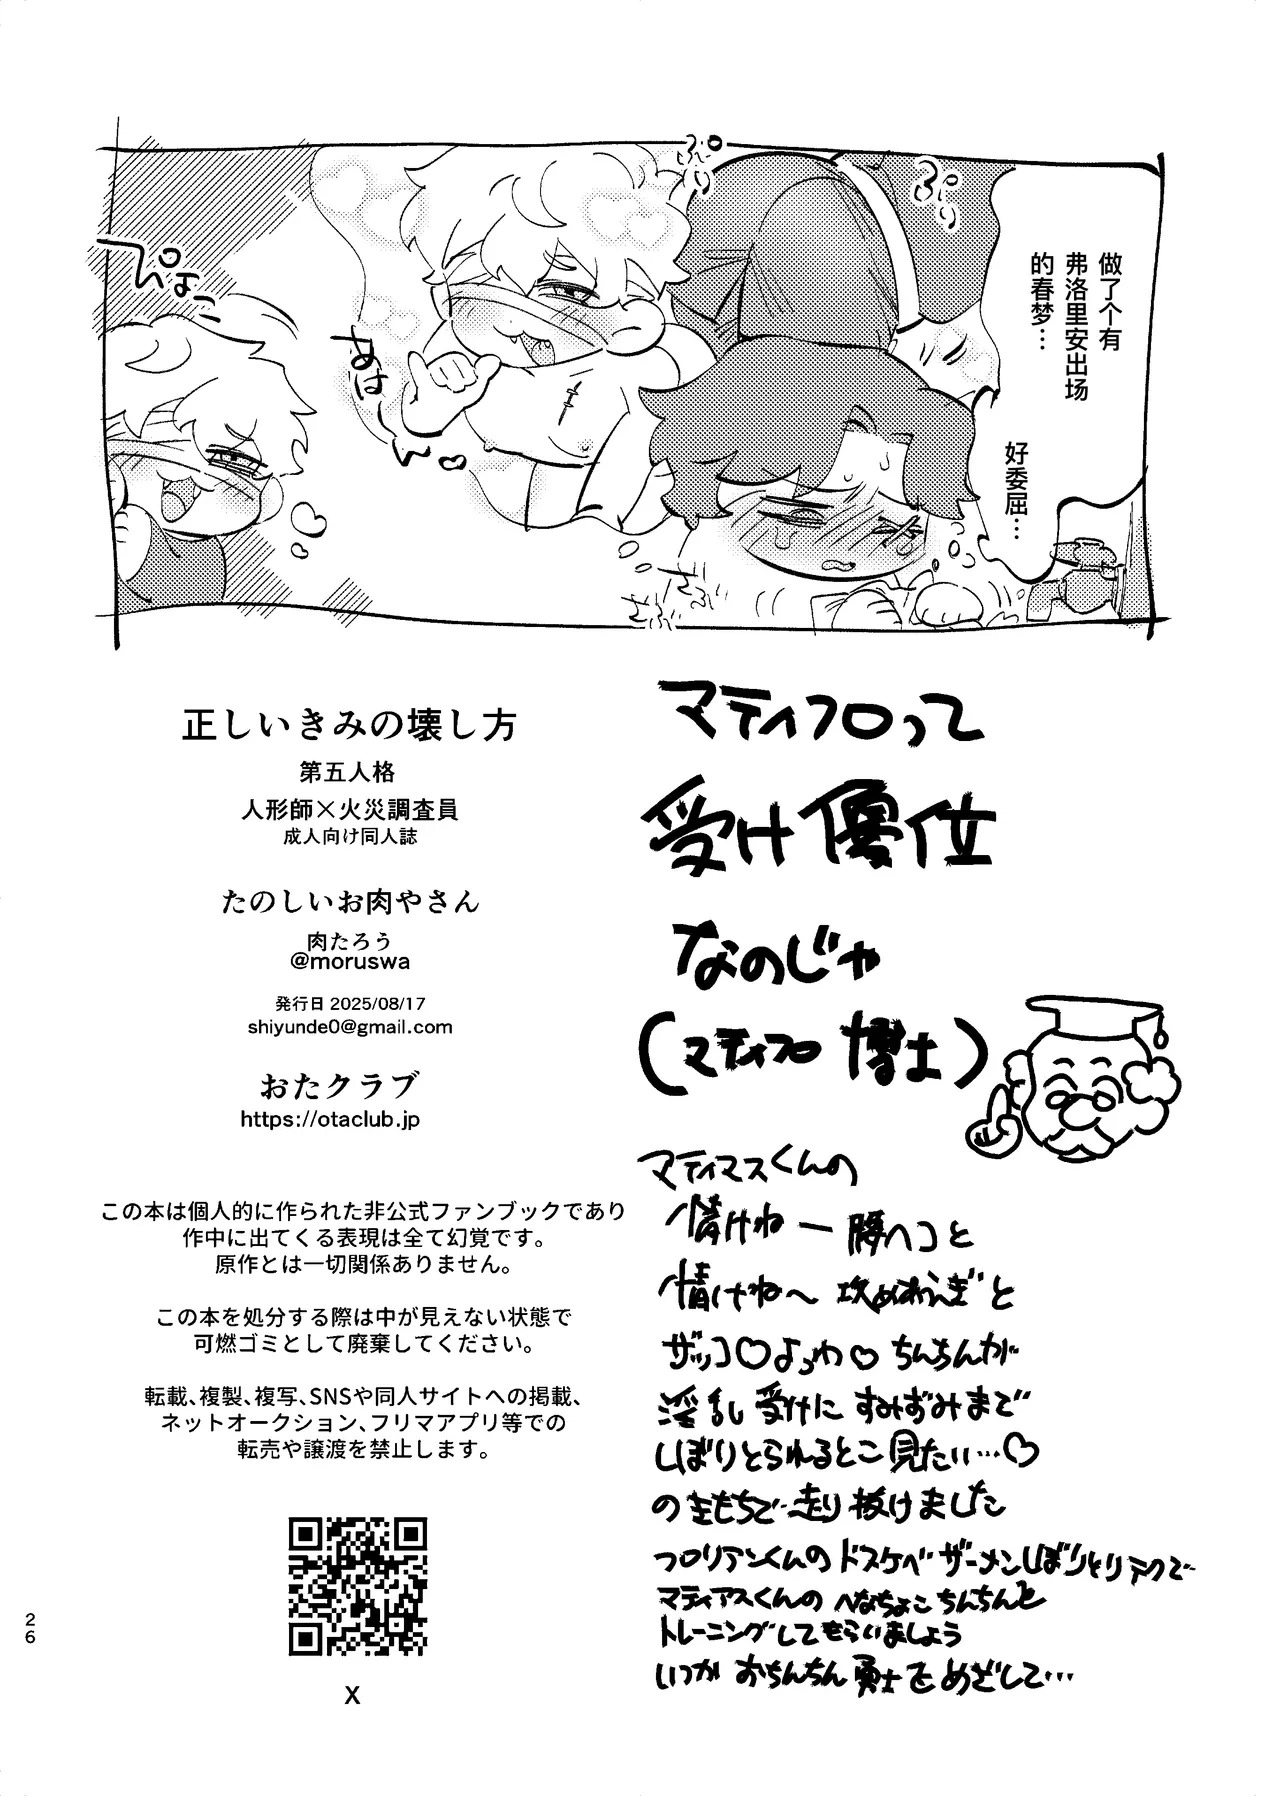 做了个有
弗洛里安出场
的春梦…
好委屈…
ぷつ
ぷつ
あは
ぴょ
マティフロって
受け優位
なのじゃ
(マティフロ 博士)
マティアスくんの
情けねー腰ヘコと
情けね〜 攻めあえぎと
ザッコ♡よっわ♡ちんちんが
淫乱受けにすみずみまで
しぼりとられるとこ見たい…♡
のきもちで走り抜けました
フロリアンくんのドスケベザーメンしぼりとりテクで
マティアスくんのへなちょこちんちんを
トレーニングしてもらいましょう
いつかおちんちん勇士をめざして…
正しいきみの壊し方
第五人格
人形師×火災調査員
成人向け同人誌
たのしいお肉やさん
肉たろう
@moruswa
発行日 2025/08/17
shiyunde0@gmail.com
おたクラブ
https://otaclub.jp
この本は個人的に作られた非公式ファンブックであり
作中に出てくる表現は全て幻覚です。
原作とは一切関係ありません。
この本を処分する際は中が見えない状態で
可燃ゴミとして廃棄してください。
転載、複製、複写、SNSや同人サイトへの掲載、
ネットオークション、フリマアプリ等での
転売や譲渡を禁止します。
X
26